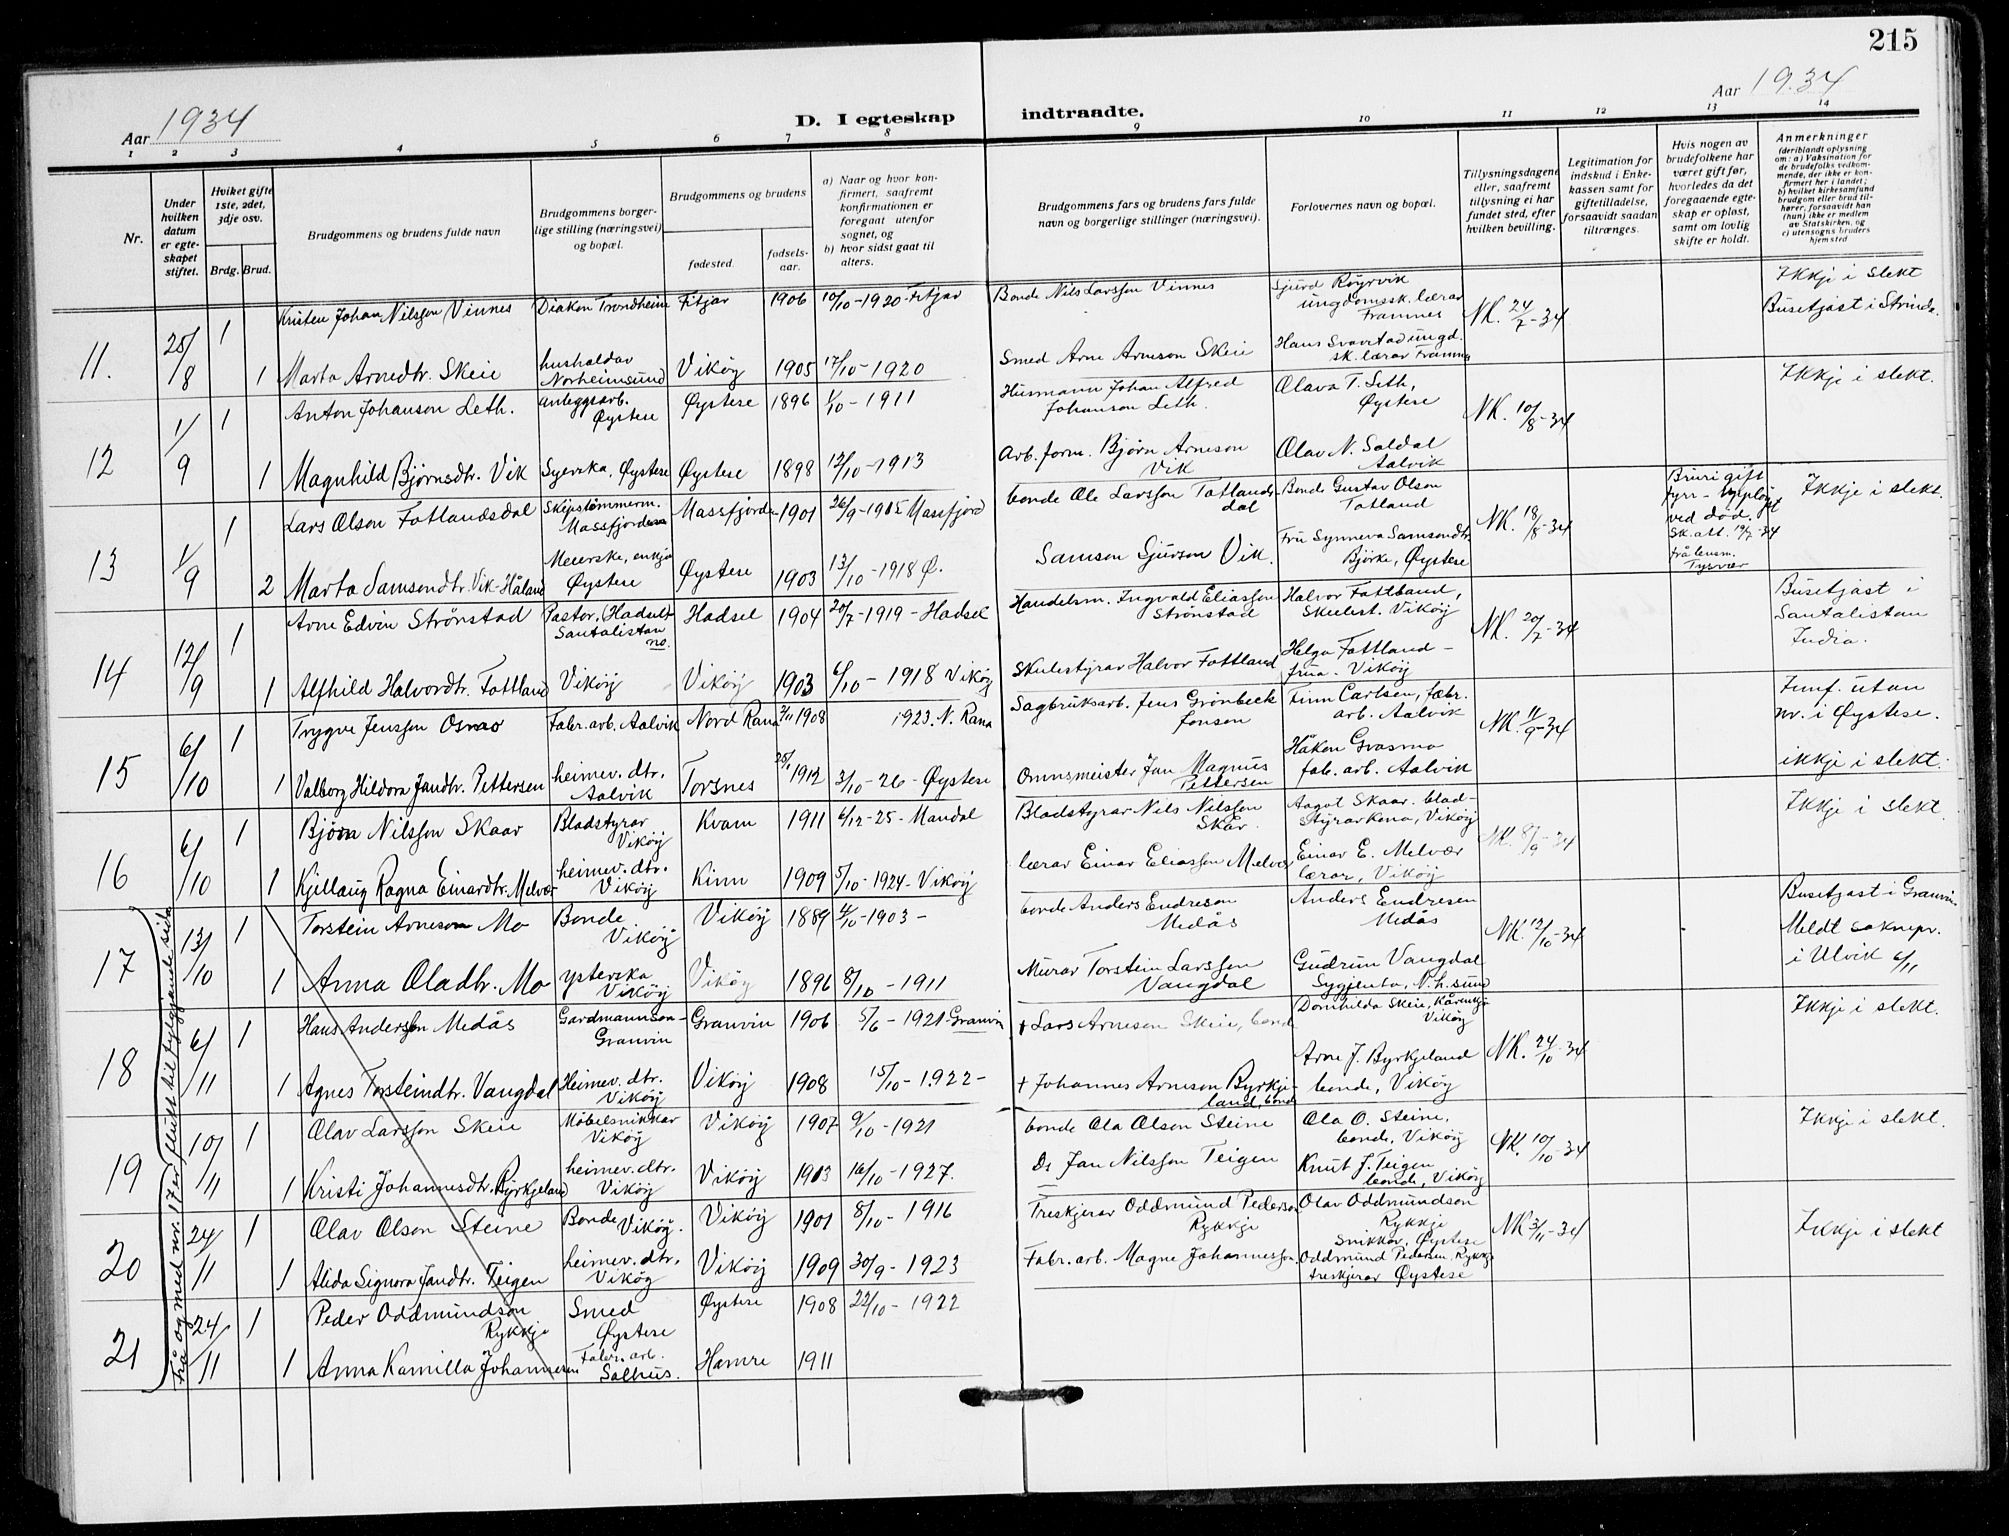 215
Aar 1934
D. I egteskap indtraadte.
Aar 1934
1 2 3 4 5 6 7 8 9 10 11 12 13 14
Nr.
Under hvilken datum er egteskapet stiftet.
Hviket gifte 1ste, 2det, 3dje osv.
Brdg. Brud.
Brudgommens og brudens fulde navn
Brudgommens borgerlige stilling (næringsvei) og bopæl.
Brudgommens og brudens
fødested.
fødselsaar.
a) Naar og hvor konfirmert, saafremt konfirmationen er foregaat utenfor sognet, og
b) hvor sidst gaat til alters.
Brudgommens fars og brudens fars fulde navn og borgerlige stillinger (næringsvei).
Forlovernes navn og bopæl.
Tillysningsdagene eller, saafremt tillysning ei har fundet sted, efter hvilken bevilling.
Legitimation for indskud i Enkekassen samt for giftetilladelse, forsaavidt saadan tiltrænges.
Hvis nogen av brudefolkene har været gift før, hvorledes da det foregaaende egteskap er opløst, samt om lovlig skifte er holdt.
Anmerkninger (deriblandt oplysning om: a) Vaksination for de brudefolks vedkommende, der ikke er konfirmert her i landet; b) hvilket kirkesamfund brudgom eller brud tilhører, forsaavidt han (hun) ikke er medlem av Statskirken, og c) utensogns bruders hjemsted
11. 25/8 1 Kristen Johan Nilssen Vinnes Diakon Trondheim Fitjar 1906 10/10-1920-Fitjar Bonde Nils Larssen Vinnes Sjurd Røyrvik ungdomssk. lærar Framnes NK. 24/7-34 Ikkje i slekt Busetjast i Strinda
1 Marta Arnedtr. Skeie hushaldar Norheimsund Vikøy 1905 17/10-1920 Smed Arne Arneson Skeie Hans Svartad ungd. sk. lærar Framnes
12 1/9 1 Anton Johanson Leth. anleggsarb. Øystese Øystese 1896 1/10-1911 Husmann Johan Alfred Johanson Leth. Olava T. Leth, Øystese NK. 10/8-34 Ikkje i slekt.
1 Magnhild Bjørnsdtr. Vik Syerska, Øystese Øystese 1898 12/10-1913 Arb. form. Bjørn Arneson Vik Olav N. Soldal Aalvik
13 1/9 1 Lars Olson Fotlandsdal Skipstømmerm. Massfjorden Massfjorden 1901 26/9-1915 Massfjord bonde Ole Larssen Totlandsdal Bonde Gustav Olson Totland NK. 18/8-34 Bruri gift fyrr - uppløyst ved død. Sk.att. 19/7-34 frå lensm. Tysvær Ikkje i slekt.
2 Marta Samsondtr. Vik-Håland Meierske, enkja Øystese Øystese 1903 13/10-1918 Ø. Samson Sjurson Vik. Fru Synneva Samsondtr. Bjørke, Øystese
14 12/9 1 Arne Edvin Strønstad Pastor, (Hadsel) Santalistan no. Hadsel 1904 20/7-1919-Hadsel Handelsm. Ingvald Eliassen Strønstad Halvor Fottland, Skulest. Vikøy NK. 20/7-34 Busetjast i Santalistan India.
1 Alfhild Halvordtr. Fottland Vikøy Vikøy 1903 6/10-1918 Vikøy Skulestyrar Halvor Fottland Helga Fottland - frua - Vikøy
15 6/10 1 Trygve Jenssen Osmo Fabr.arb. Aalvik Nord Rana 2/11 1908 1923. N. Rana Sagbruksarb. Jens Grønbeck Jonson Finn Carlsen, fabr. arb. Aalvik NK. 11/9-34 Innf. utan nr. i Øystese.
1 Valborg Hildora Jandtr. Pettersen heimev. dtr. Aalvik Torsnes 25/1 1912 3/10-26-Øystese Omnsmeister Jan Magnus Pettersen Håkon Grasmo fab. arb. Aalvik ikkje i slekt.
16 6/10 1 Bjørn Nilssen Skaar Bladstyrar Vikøy Kvam 1911 6/12-25-Mandal Bladstyrar Nils Nilssen Skår Aagot Skaar. bladstyrarkona, Vikøy NK. 8/9-34 Ikkje i slekt
1 Kjellaug Ragna Einardtr. Melvær heimev. dtr. Vikøy Kinn 1909 5/10-1924-Vikøy lærar Einar Eliassen Melvær Einar E. Melvær lærar, Vikøy
Frå og med nr. 17 er flutt til fylgjande sida
17 13/10 1 Torstein Arneson Mo Bonde Vikøy Vikøy 1889 4/10-1903- bonde Anders Endreson Medås Anders Endresen Medås NK. 12/10-34 Busetjast i Granvin. Meldt soknepr. i Ulvik 6/11
1 Anna Oladtr. Mo ysterska Vikøy Vikøy 1896 8/10-1911 Murar Torstein Larssen Vangdal Gudrun Vangdal Sygjenta, N.h.sund
18 6/11 1 Hans Anderssen Medås Gardmannsson - Granvin Granvin 1906 5/6-1921-Granvin + Lars Arneson Skeie, bonde Dornhilda Skeie, Kårenkja Vikøy NK. 24/10-34 Ikkje i slekt.
1 Agnes Torsteindtr. Vangdal Heimev. dtr. Vikøy Vikøy 1908 15/10-1922- + Johannes Arneson Byrkjeland, bonde Arne J. Byrkjeland bonde, Vikøy
19 10/11 1 Olav Larssen Skeie Møbelsnikkar Vikøy Vikøy 1907 9/10-1921 bonde Ola Olson Steine Ola O. Steine, bonde, Vikøy NK. 10/10-34 Ikkje i slekt.
1 Kristi Johannesdtr. Byrkjeland heimev. dtr. Vikøy Vikøy 1913 16/10-1927. Ds Jan Nilssen Teigen Knut J. Teigen bonde, Vikøy
20 24/11 1 Olav Olson Steine Bonde Vikøy. Vikøy 1901 8/10-1916 Treskjerar Oddmund Pederson Rykkje Olav Oddmundson Rykkje Snikkar, Øystese NK 3/11-34 Ikkje i slekt
1 Alida Signora Jandtr. Teigen heimev. dtr. Vikøy Vikøy 1909 30/9-1923 Fabr. arb. Magne Johannessen Oddmund Pedersen Rykkje treskjerar Øystese
21 24/11 1 Peder Oddmundson Rykkje Smed Øystese Øystese 1908 22/10-1922
1 Anna Kamilla Johannessen Fabr. arb. Salhus. Hamre 1911